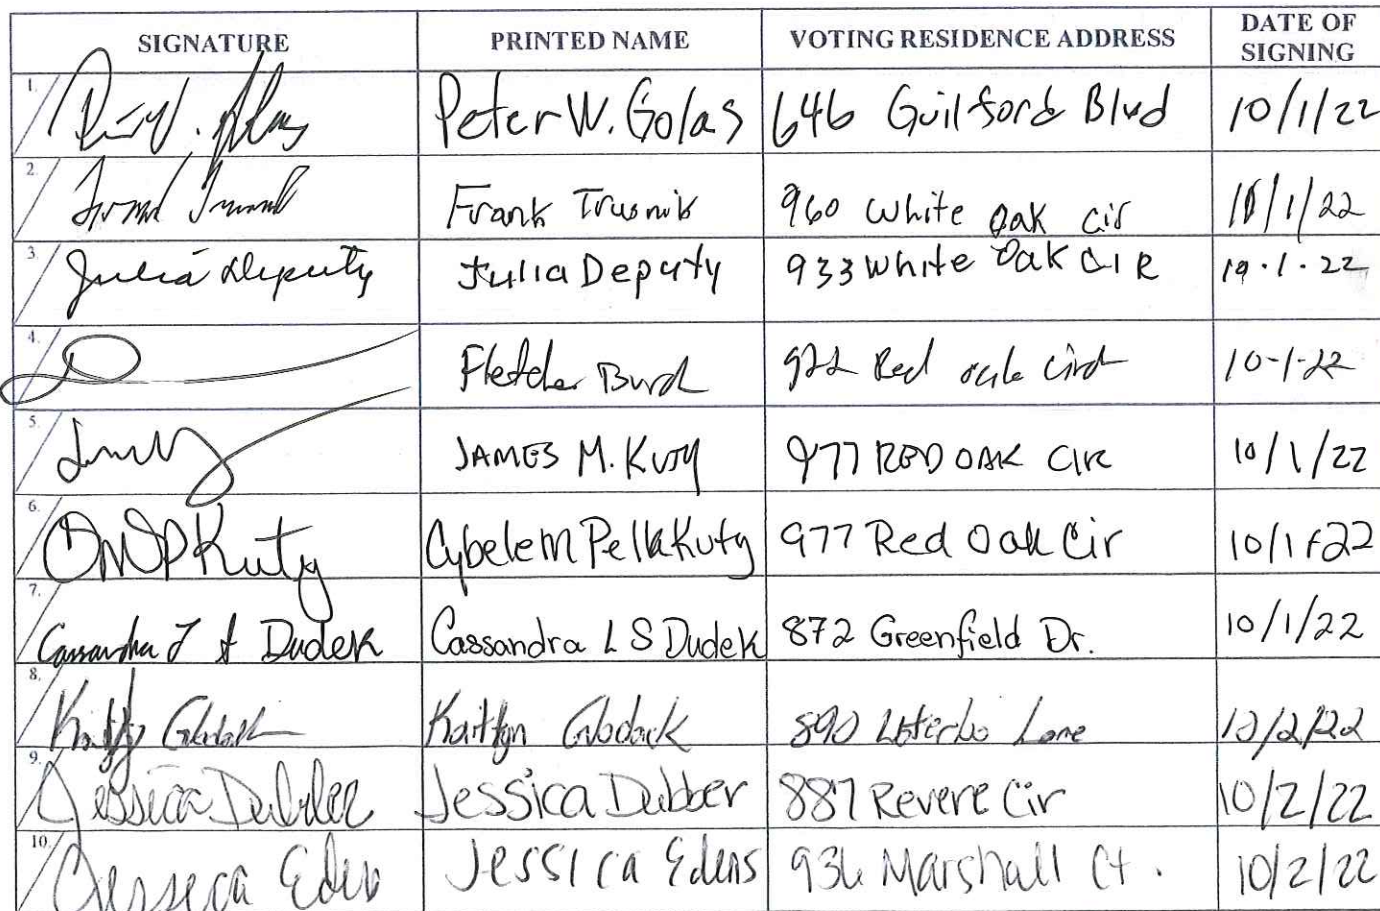 SIGNATURE PRINTED NAME VOTING RESIDENCE ADDRESS DATE OF SIGNING
1. Peter W. Golas 646 Guilford Blvd 10/1/22
2. Frank Trusnik 960 White Oak Cir 10/1/22
3. Julia Deputy Julia Deputy 933 White Oak CIR 10.1.22
4. Fletcher Burd 922 Red oak 10-1-22
5. JAMES M. KUTY 977 RED OAK CIR 10/1/22
6. CMDP Kuty Cybele M Pella Kuty 977 Red Oak Cir 10/1/22
7. Cassandra L S Dudek Cassandra L S Dudek 872 Greenfield Dr. 10/1/22
8. Kaitlyn 890 Lane 10/2/22
9. Jessica Dubber Jessica Dubber 887 Revere Cir 10/2/22
10. Jessica Edens Jessica Edens 936 Marshall Ct. 10/2/22